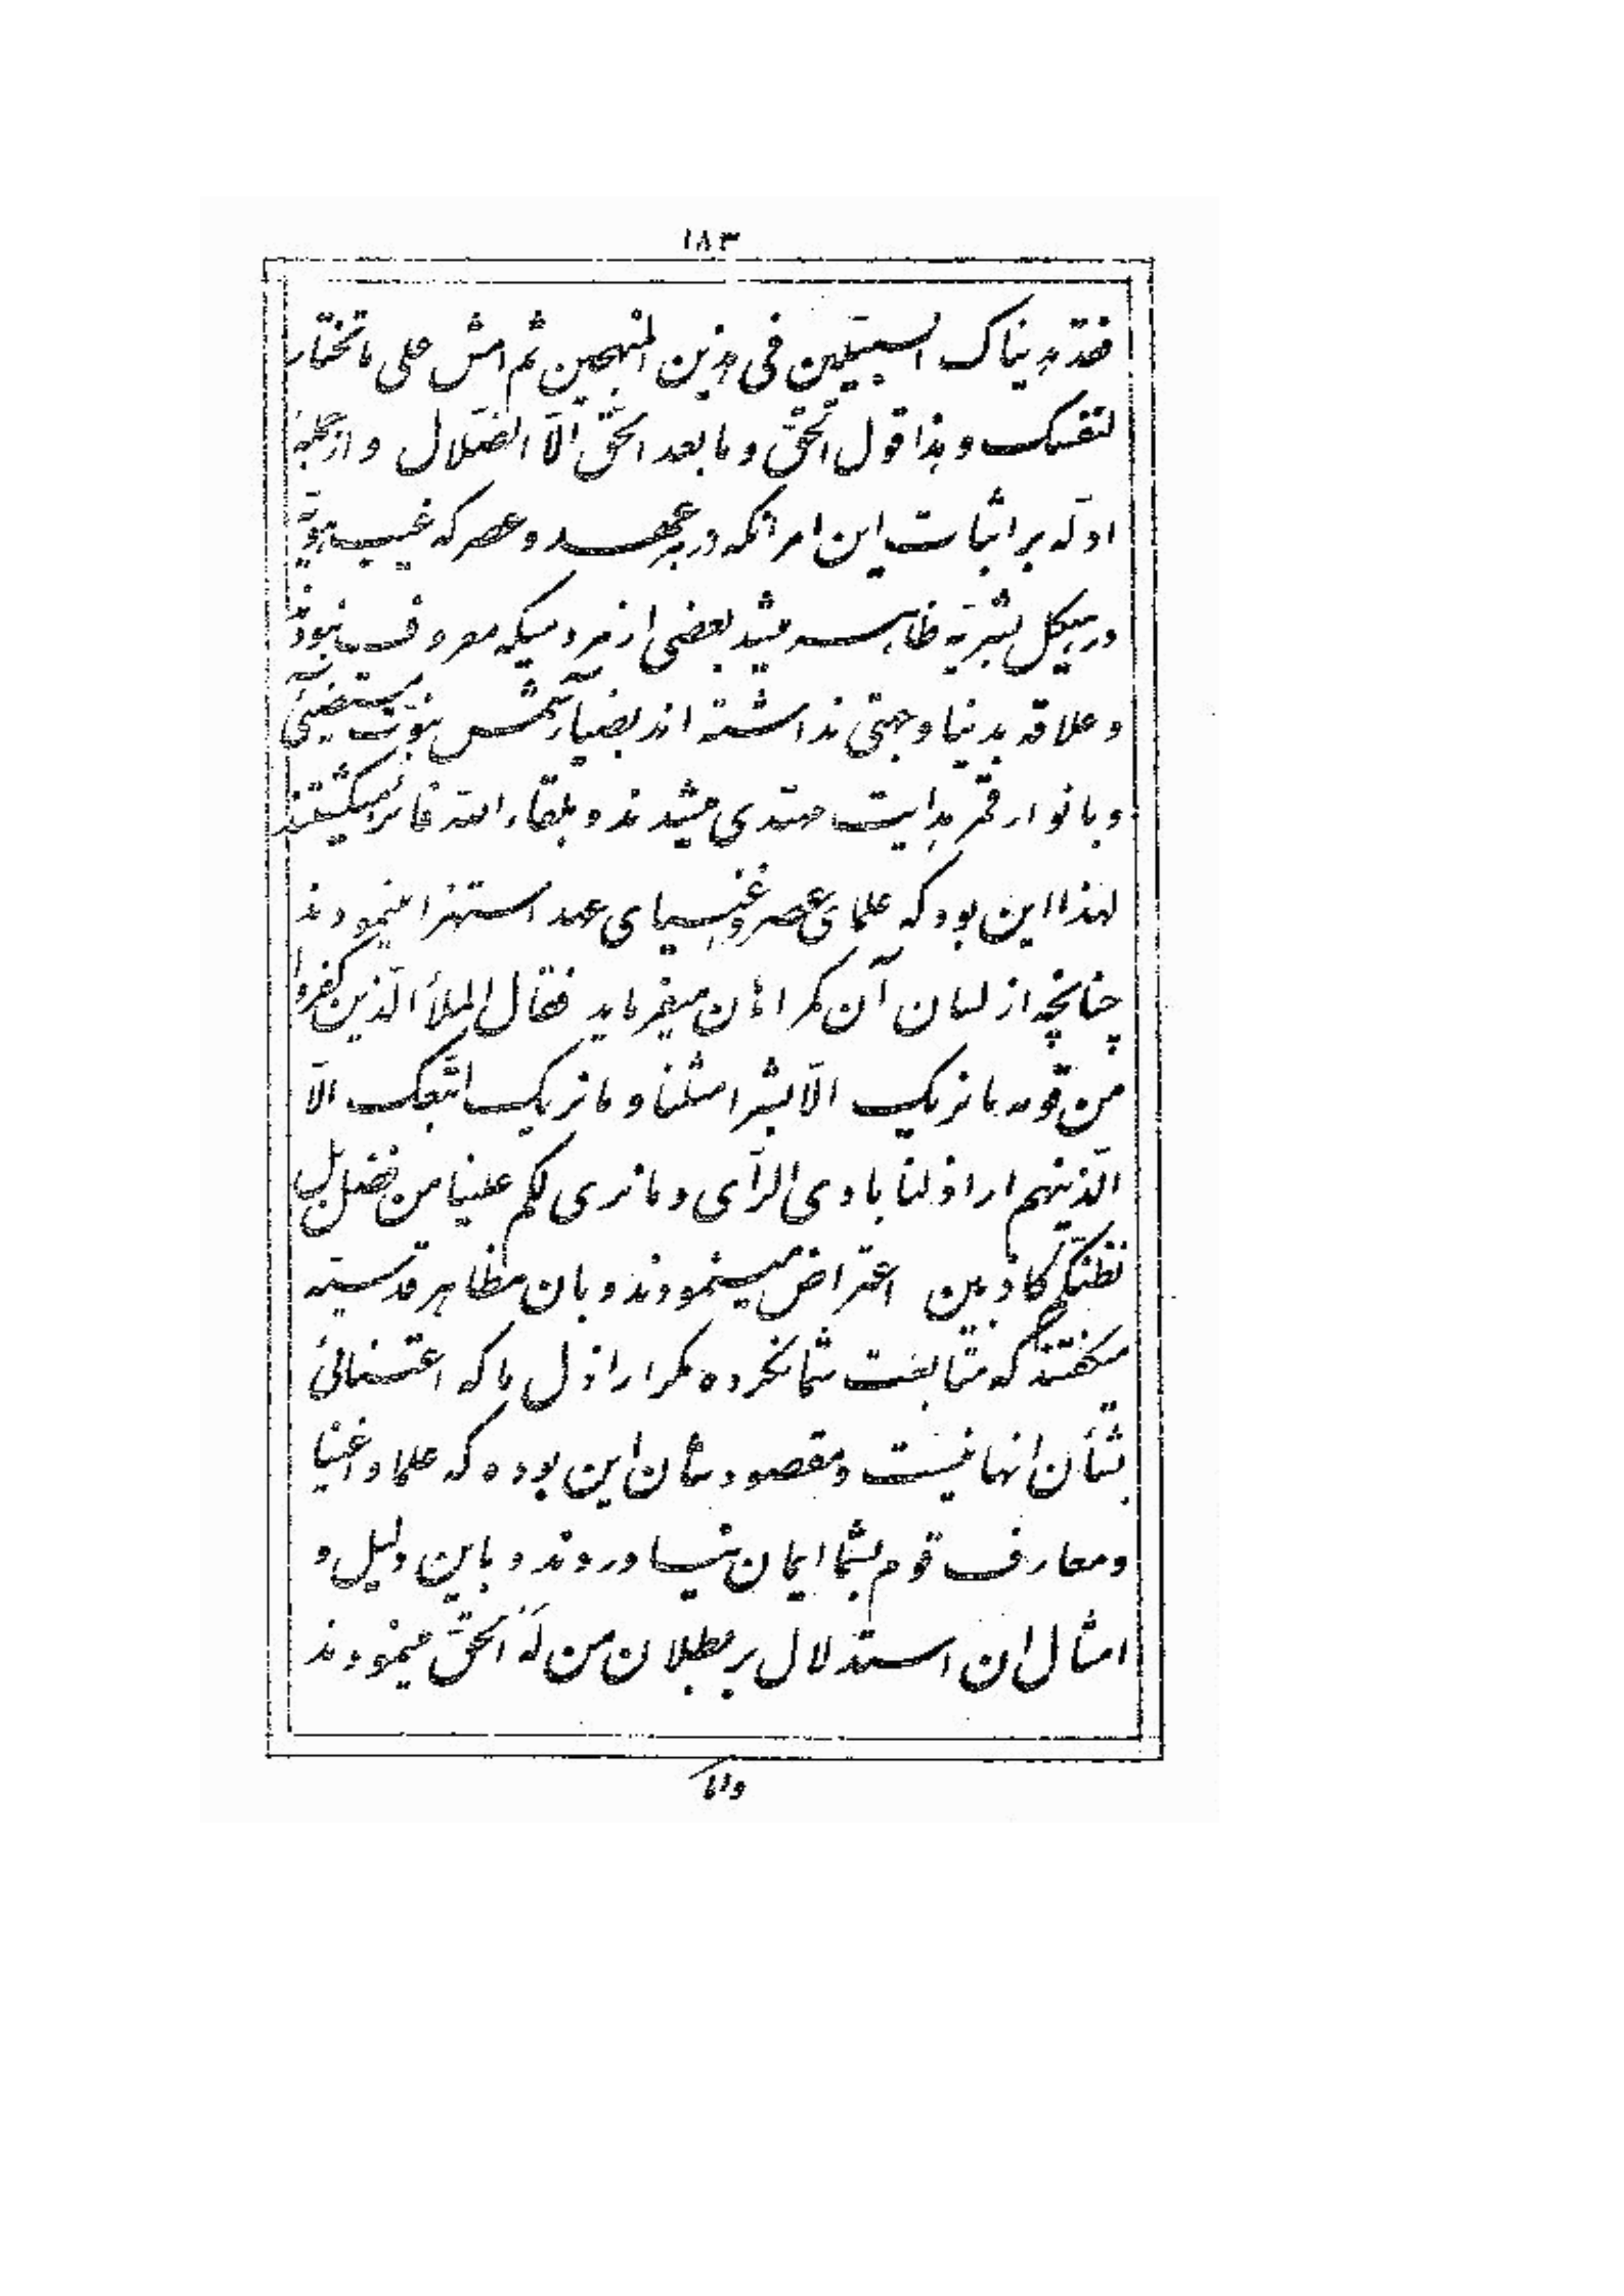 ۱۸۳
فقد هدیناک السبیلین فی هذین المنهجین ثم امش علی ما تختار
لنفسک و هذا قول الحقّ و ما بعد الحقّ الّا الضّلال و از جمله
ادلّه بر اثبات این امر انکه در هر عهد و عصر که غیب هویّه
در هیکل بشریّه ظاهر میشد بعضی از مردمیکه معروف نبودند
و علاقه بدنیا و جهتی نداشته اند بضیاء شمس نبوّت مستضیئ
و بانوار قمر هدایت مهتدی میشدند و بلقاء الله فائز میگشتند
لهذا این بود که علمای عصر و اغنیای عهد استهزا مینمودند
چنانچه از لسان آن گمراهان میفرماید فقال الملأ الّذین کفروا
من قومه ما نریک الّا بشرا مثلنا و ما نریک اتّبعک الّا
الّذینهم اراذلنا بادی الرّأی و ما نری لکم علینا من فضل بل
نظنّکم کاذبین اعتراض مینمودند و بان مظاهر قدسیّه
میگفتند که متابعت شما نکرده مگر اراذل ما که اعتنائی
بشأن انها نیست و مقصودشان این بوده که علما و اغنیا
و معارف قوم بشما ایمان نیاوردند و باین دلیل و
امثال ان استدلال بر بطلان من له الحقّ مینمودند
و امّا